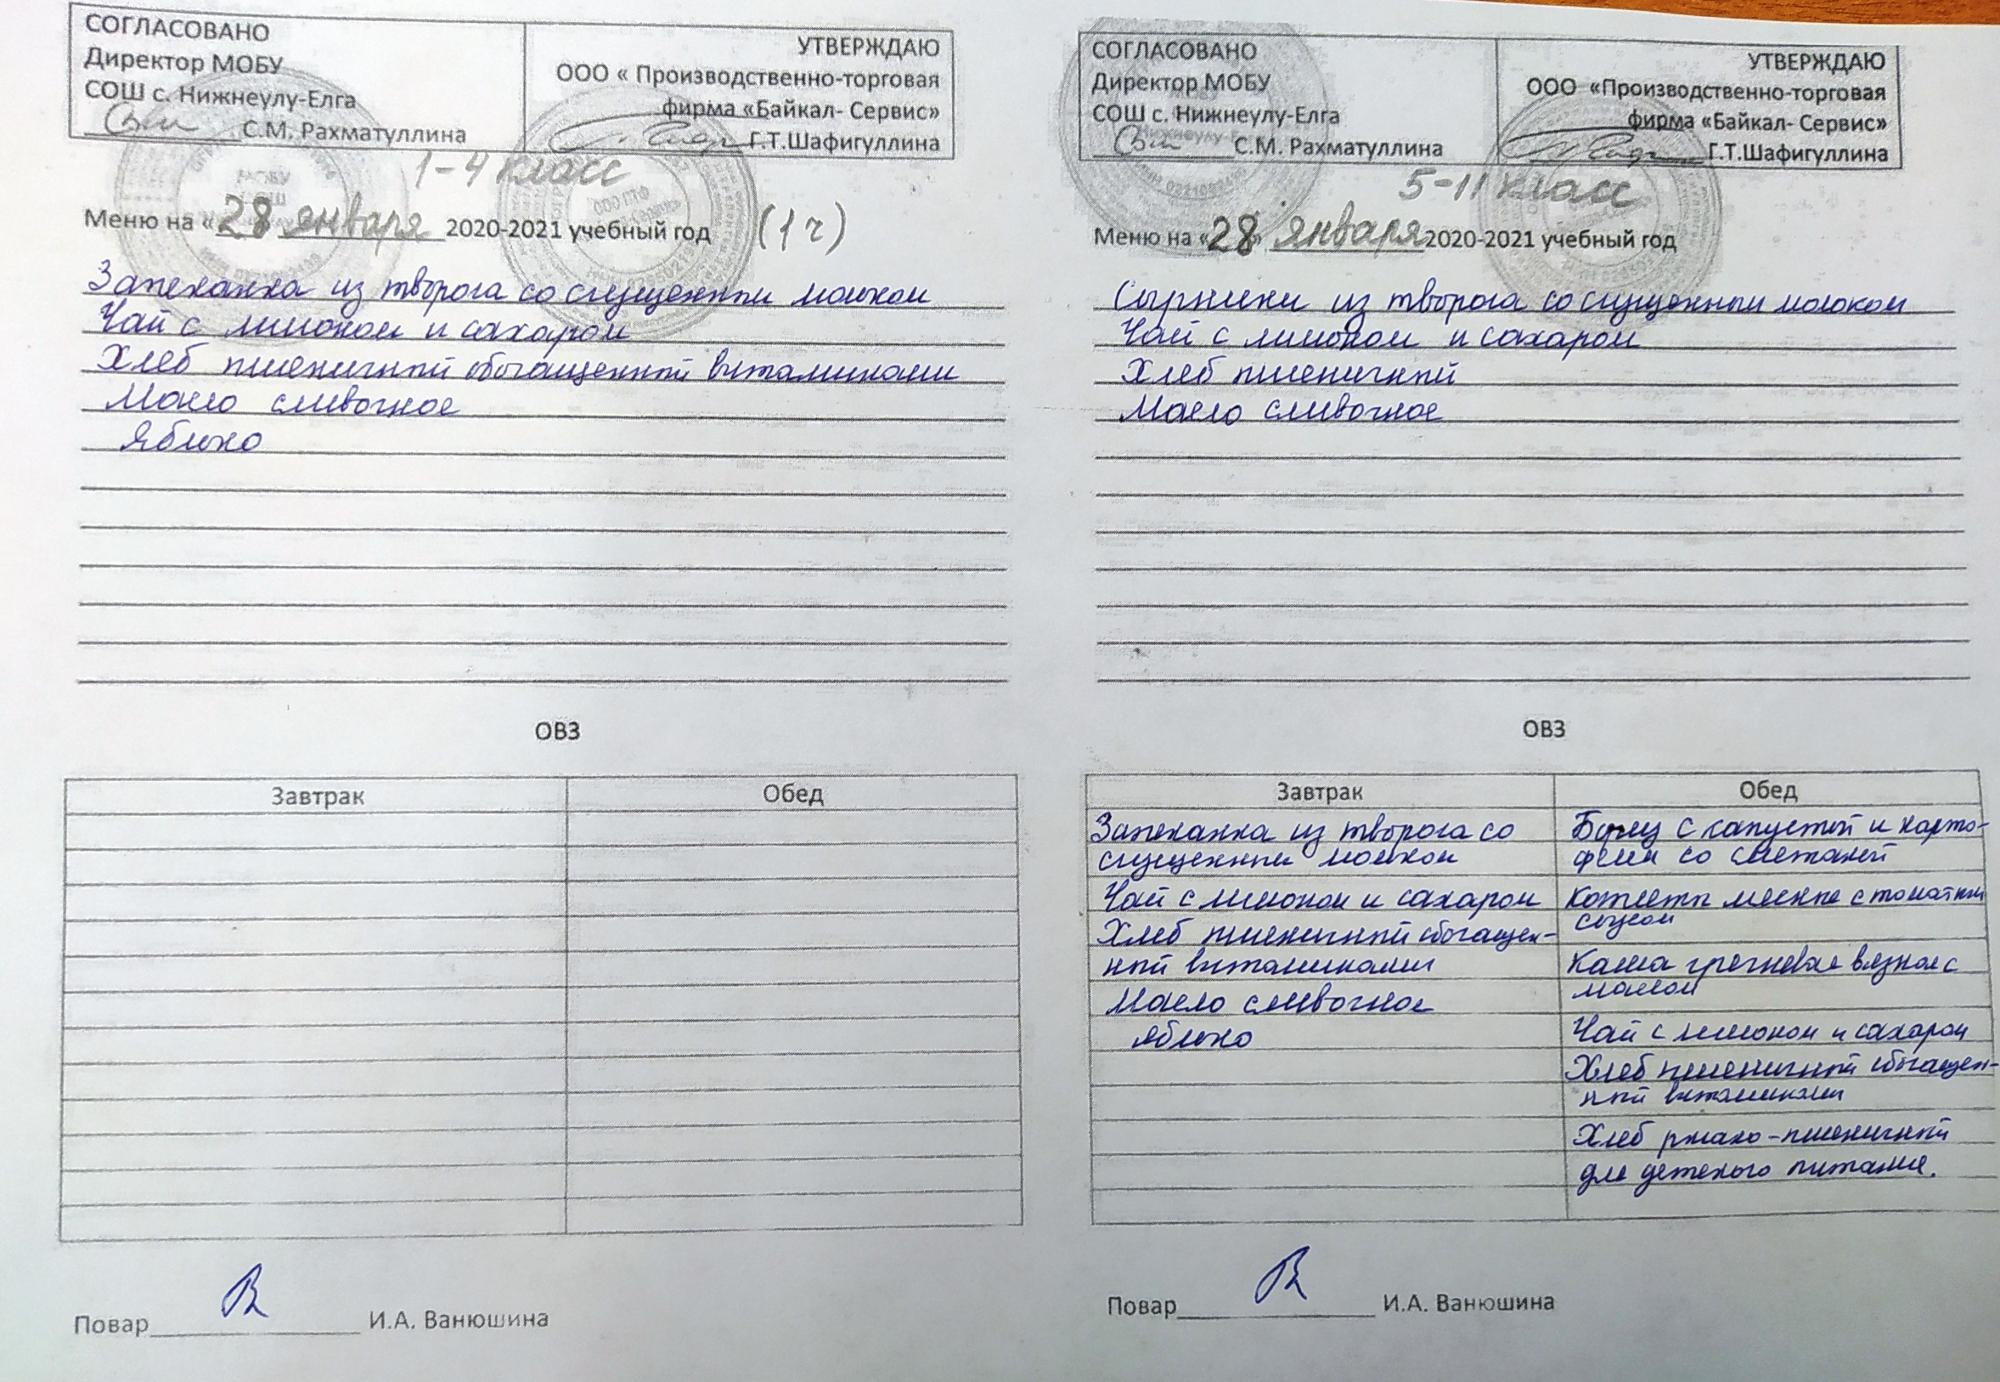 СОГЛАСОВАНО
Директор МОБУ
СОШ с. Нижнеулу-Елга
С.М. Рахматуллина
УТВЕРЖДАЮ
ООО « Производственно-торговая
фирма «Байкал- Сервис»
Г.Т.Шафигуллина
1-4 класс
Меню на «28 января 2020-2021 учебный год (1ч)
Запеканка из творога со сгущенным молоком
Чай с лимоном и сахаром
Хлеб пшеничный обогащенный витаминами
Масло сливочное
Яблоко
ОВЗ
Завтрак Обед
Повар И.А. Ванюшина
СОГЛАСОВАНО
Директор МОБУ
СОШ с. Нижнеулу-Елга
С.М. Рахматуллина
УТВЕРЖДАЮ
ООО «Производственно-торговая
фирма «Байкал- Сервис»
Г.Т.Шафигуллина
5-11 класс
Меню на «28» января 2020-2021 учебный год
Сырники из творога со сгущенным молоком
Чай с лимоном и сахаром
Хлеб пшеничный
Масло сливочное
ОВЗ
Завтрак
Запеканка из творога со
сгущенным молоком
Чай с лимоном и сахаром
Хлеб пшеничный обогащен-
ный витаминами
Масло сливочное
яблоко
Обед
Борщ с капустой и карто-
фелем со сметаной
Котлеты мясные с томатным
соусом
Каша гречневая вязкая с
маслом
Чай с лимоном и сахаром
Хлеб пшеничный обогащен-
ный витаминами
Хлеб ржано-пшеничный
для детского питания.
Повар И.А. Ванюшина